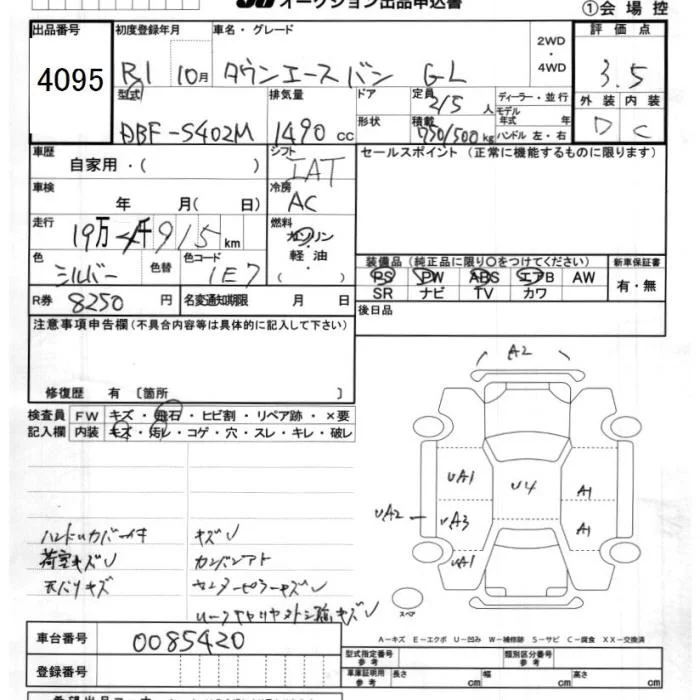 オークション出品申込書
①会場控
出品番号 初度登録年月 車名・グレード 2WD・4WD 評価点
4095 R1 10月 タウンエースバン GL 3.5
型式 排気量 ドア 定員 2/5人 ディーラー・並行 外装 内装
DBF-S402M 1490cc 形状 積載 750/500kg モデル年式 年 ハンドル 左・右 D C
車歴 自家用・( ) シフト IAT セールスポイント(正常に機能するものに限ります)
車検 年 月( 日) 冷房 AC
走行 19万4千915km 燃料 ガソリン・軽油・( )
色 シルバー 色替 色コード 1E7 装備品(純正品に限り○をつけてください) 新車保証書
PS PW ABS エアB AW 有・無
R券 8250円 名変通知期限 月 日 SR ナビ TV カワ
注意事項申告欄(不具合内容等は具体的に記入して下さい) 後日品
修復歴 有 〔箇所 〕
検査員 FW キズ・飛石・ヒビ割・リペア跡・×要
記入欄 内装 キズ・汚レ・コゲ・穴・スレ・キレ・破レ
A2
UA1 U4 A1
UA2 UA3 A1
UA1
ハンドルカバー付 キズ∪
荷室キズ∪ カンバンアト
天バリキズ センターピラーキズ∪
スペア
A-キズ E-エクボ U-凹み W-補修跡 S-サビ C-腐食 XX-交換済
車台番号 0085420
型式指定番号 参考 類別区分番号 参考
登録番号 車庫証明用 参考 長さ cm 幅 cm 高さ cm